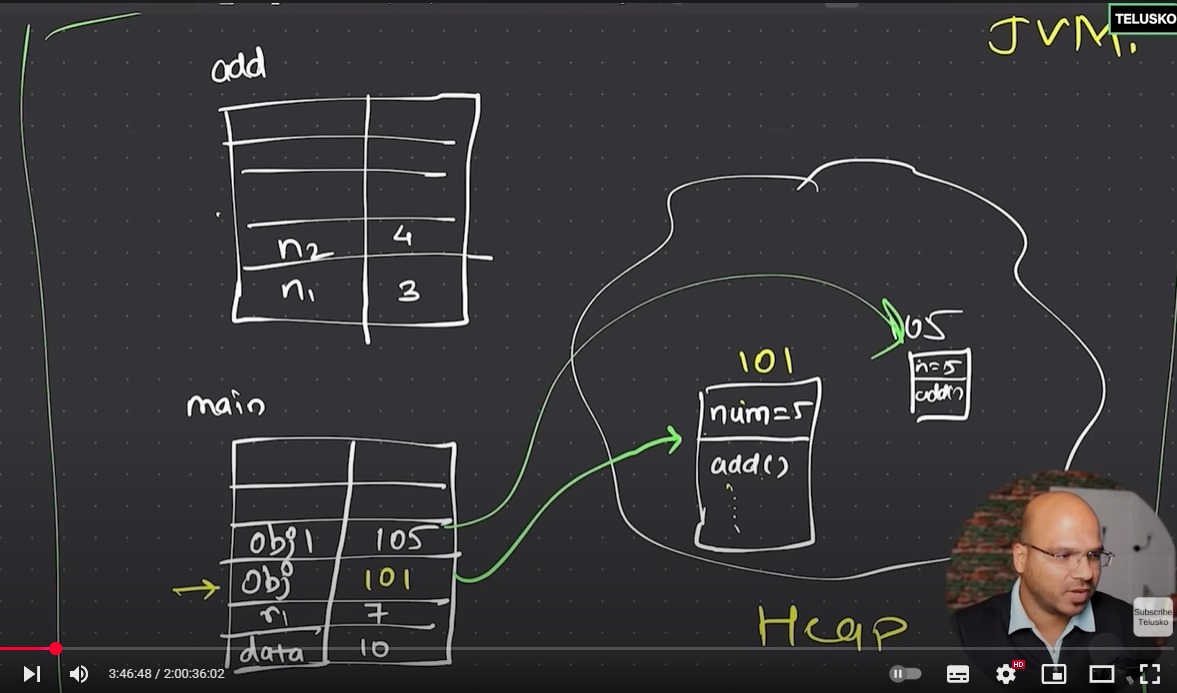 JVM.
TELUSKO
add
n2 4
n1 3
main
obj1 105
obj 101
r1 7
data 10
105
n=5
add()
101
num=5
add()
Heap
Subscribe
Telusko
3:46:48 / 2:00:36:02
HD